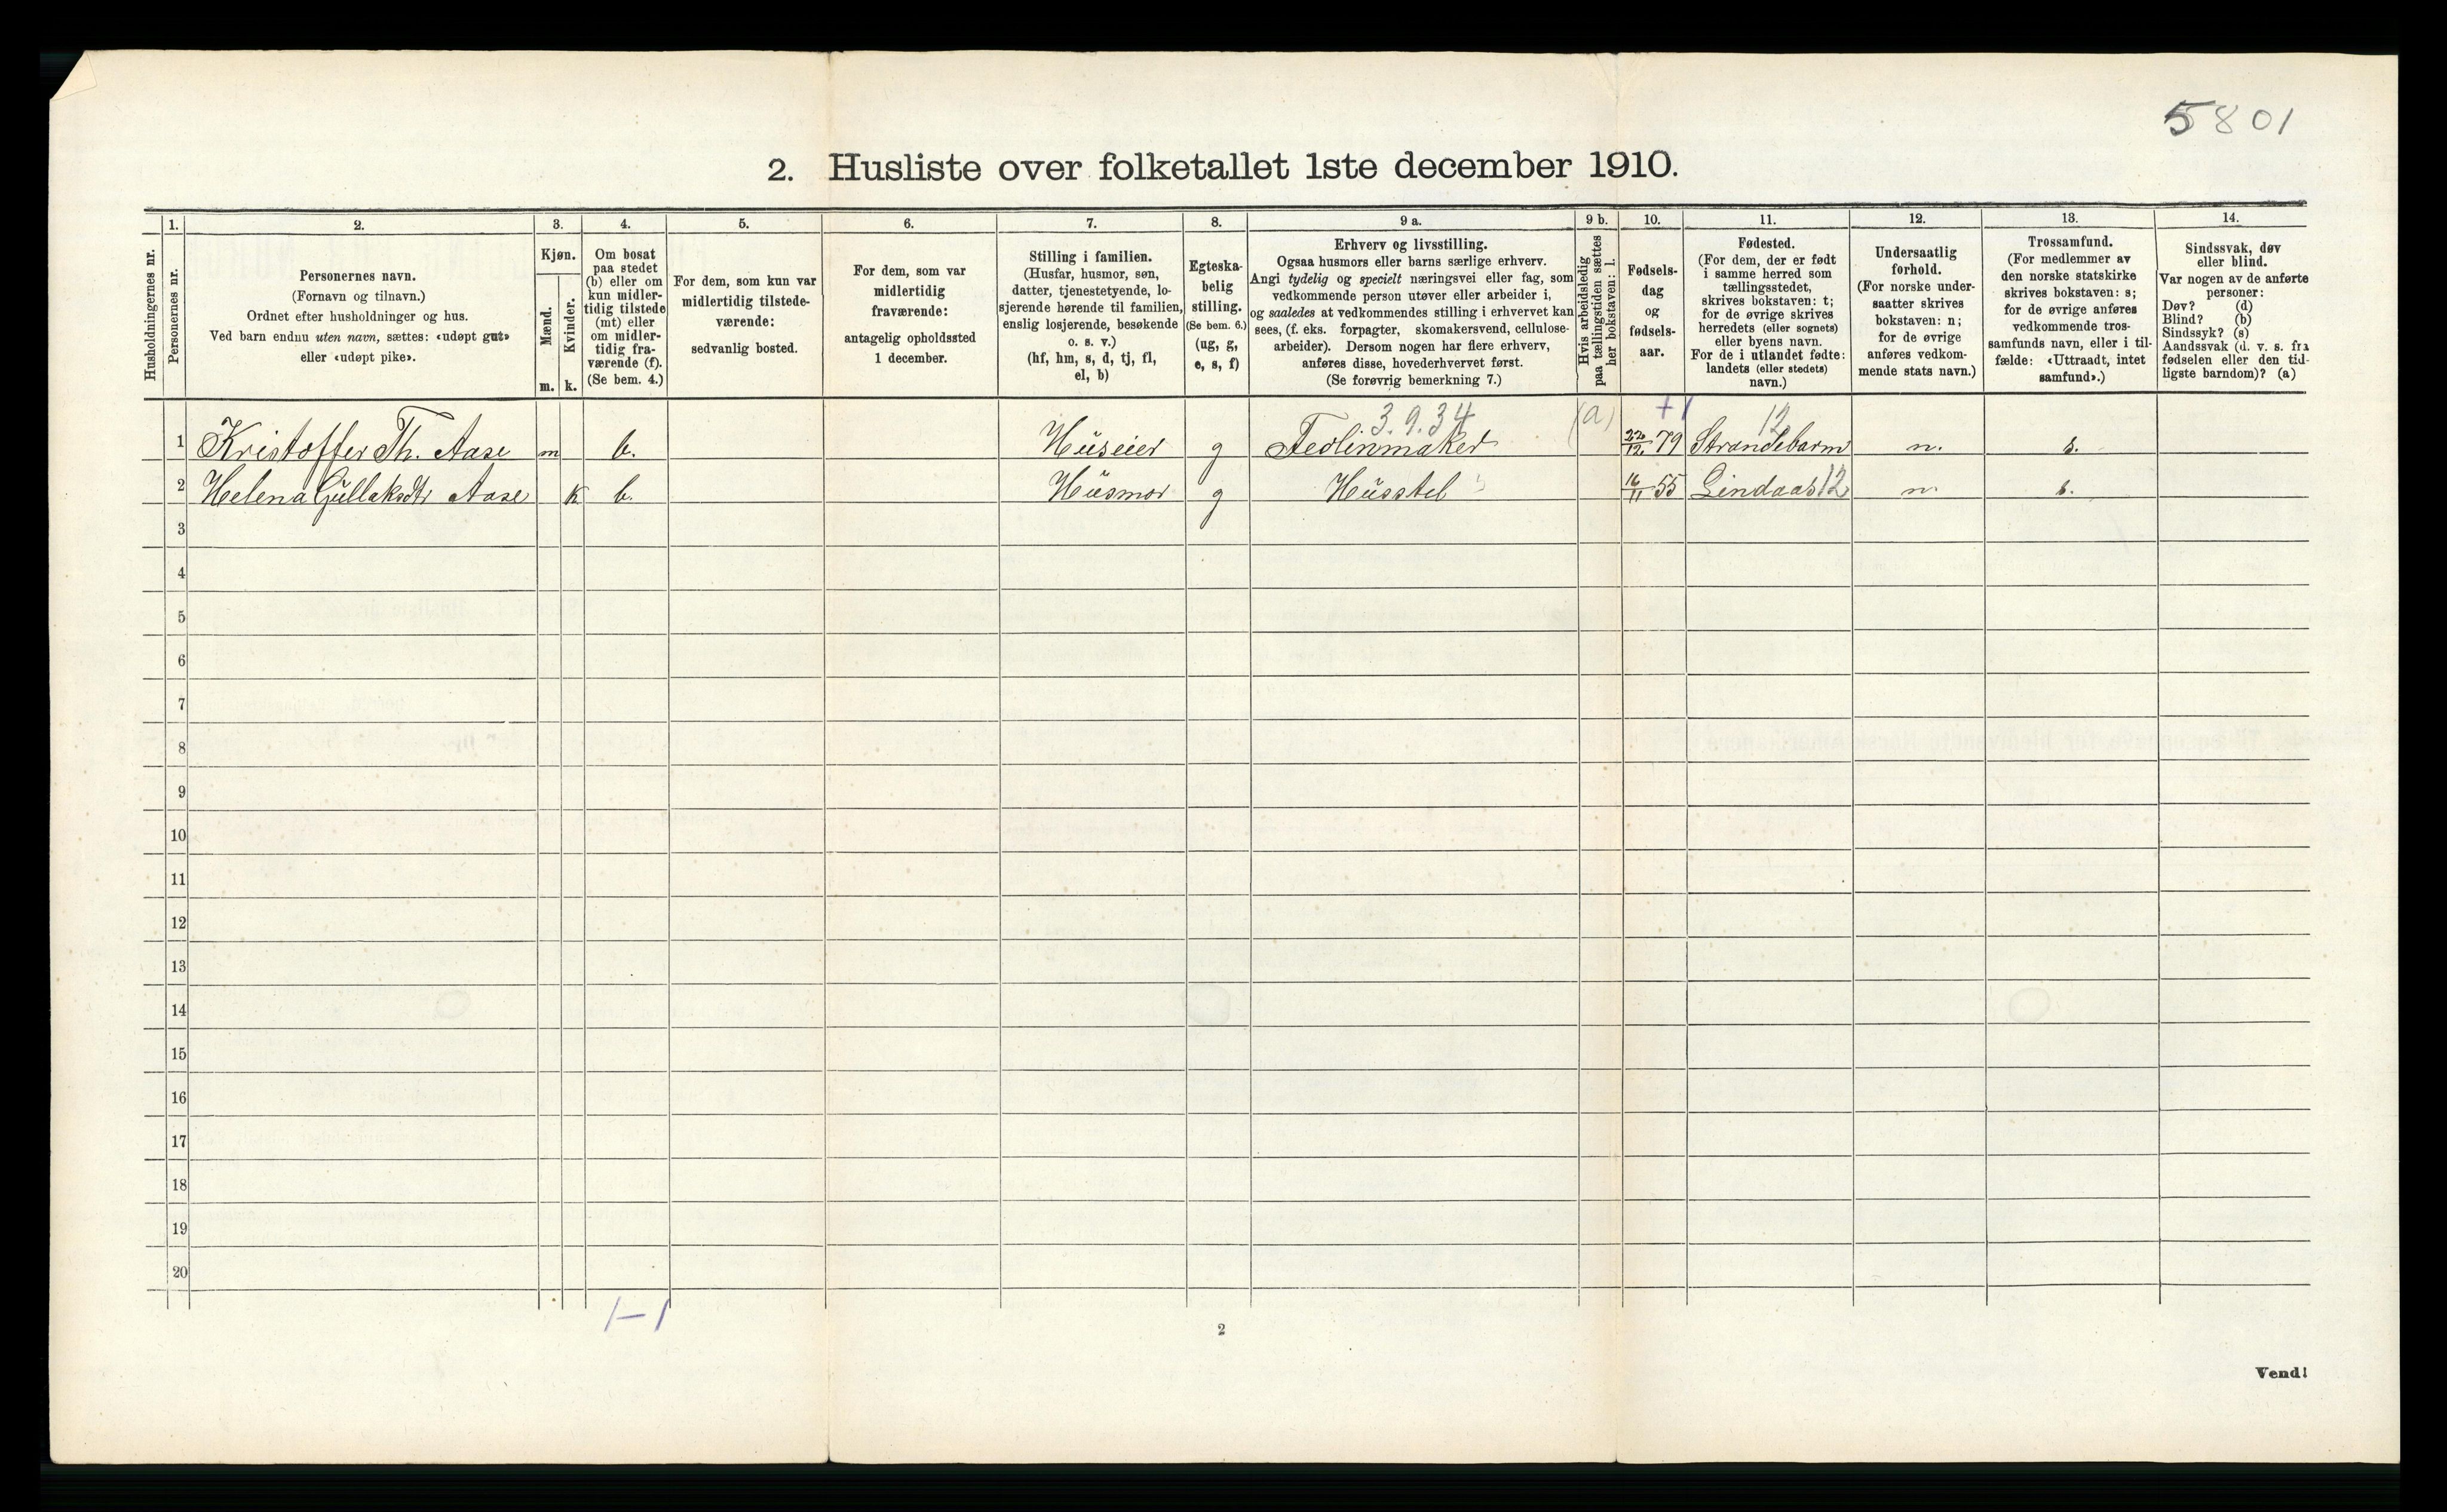 5801
2. Husliste over folketallet 1ste december 1910.
Husholdningernes nr.
1.
Personernes nr.
2.
Personernes navn.
(Fornavn og tilnavn.)
Ordnet efter husholdninger og hus.
Ved barn endnu uten navn, sættes: «udøpt gut»
eller «udøpt pike».
3.
Kjøn.
Mænd.
Kvinder.
m. k.
4.
Om bosat
paa stedet
(b) eller om
kun midler-
tidig tilstede
(mt) eller
om midler-
tidig fra-
værende (f).
(Se bem. 4.)
5.
For dem, som kun var
midlertidig tilstede-
værende:
sedvanlig bosted.
6.
For dem, som var
midlertidig
fraværende:
antagelig opholdssted
1 december.
7.
Stilling i familien.
(Husfar, husmor, søn,
datter, tjenestetyende, lo-
sjerende hørende til familien,
enslig losjerende, besøkende
o. s. v.)
(hf, hm, s, d, tj, fl,
el, b)
8.
Egteska-
belig
stilling.
(Se bem. 6.)
(ug, g,
e, s, f)
9 a.
Erhverv og livsstilling.
Ogsaa husmors eller barns særlige erhverv.
Angi tydelig og specielt næringsvei eller fag, som
vedkommende person utøver eller arbeider i,
og saaledes at vedkommendes stilling i erhvervet kan
sees, (f. eks. forpagter, skomakersvend, cellulose-
arbeider). Dersom nogen har flere erhverv,
anføres disse, hovederhvervet først.
(Se forøvrig bemerkning 7.)
9 b.
Hvis arbeidsledig
paa tællingstiden sættes
her bokstaven: l.
10.
Fødsels-
dag
og
fødsels-
aar.
11.
Fødested.
(For dem, der er født
i samme herred som
tællingsstedet,
skrives bokstaven: t;
for de øvrige skrives
herredets (eller sognets)
eller byens navn.
For de i utlandet fødte:
landets (eller stedets)
navn.)
12.
Undersaatlig
forhold.
(For norske under-
saatter skrives
bokstaven: n;
for de øvrige
anføres vedkom-
mende stats navn.)
13.
Trossamfund.
(For medlemmer av
den norske statskirke
skrives bokstaven: s;
for de øvrige anføres
vedkommende tros-
samfunds navn, eller i til-
fælde: «Uttraadt, intet
samfund».)
14.
Sindssvak, døv
eller blind.
Var nogen av de anførte
personer:
Døv? (d)
Blind? (b)
Sindssyk? (s)
Aandssvak (d. v. s. fra
fødselen eller den tid-
ligste barndom)? (a)
3.9.34 (a) +1 12
1 Kristoffer Th. Aase m b. Huseier g Feolinmaker 22/12 79 Strandebarm n. s.
2 Helena Gullaksdtr Aase k b. Husmor g Husstel 16/11 55 Lindaas 12 n. s.
3
4
5
6
7
8
9
10
11
12
13
14
15
16
17
18
19
20
1-1
2
Vend!